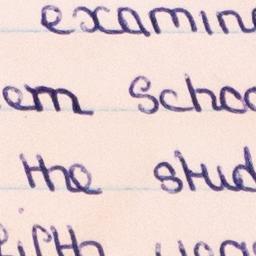 examin
em Schoo
the stud
fifth year